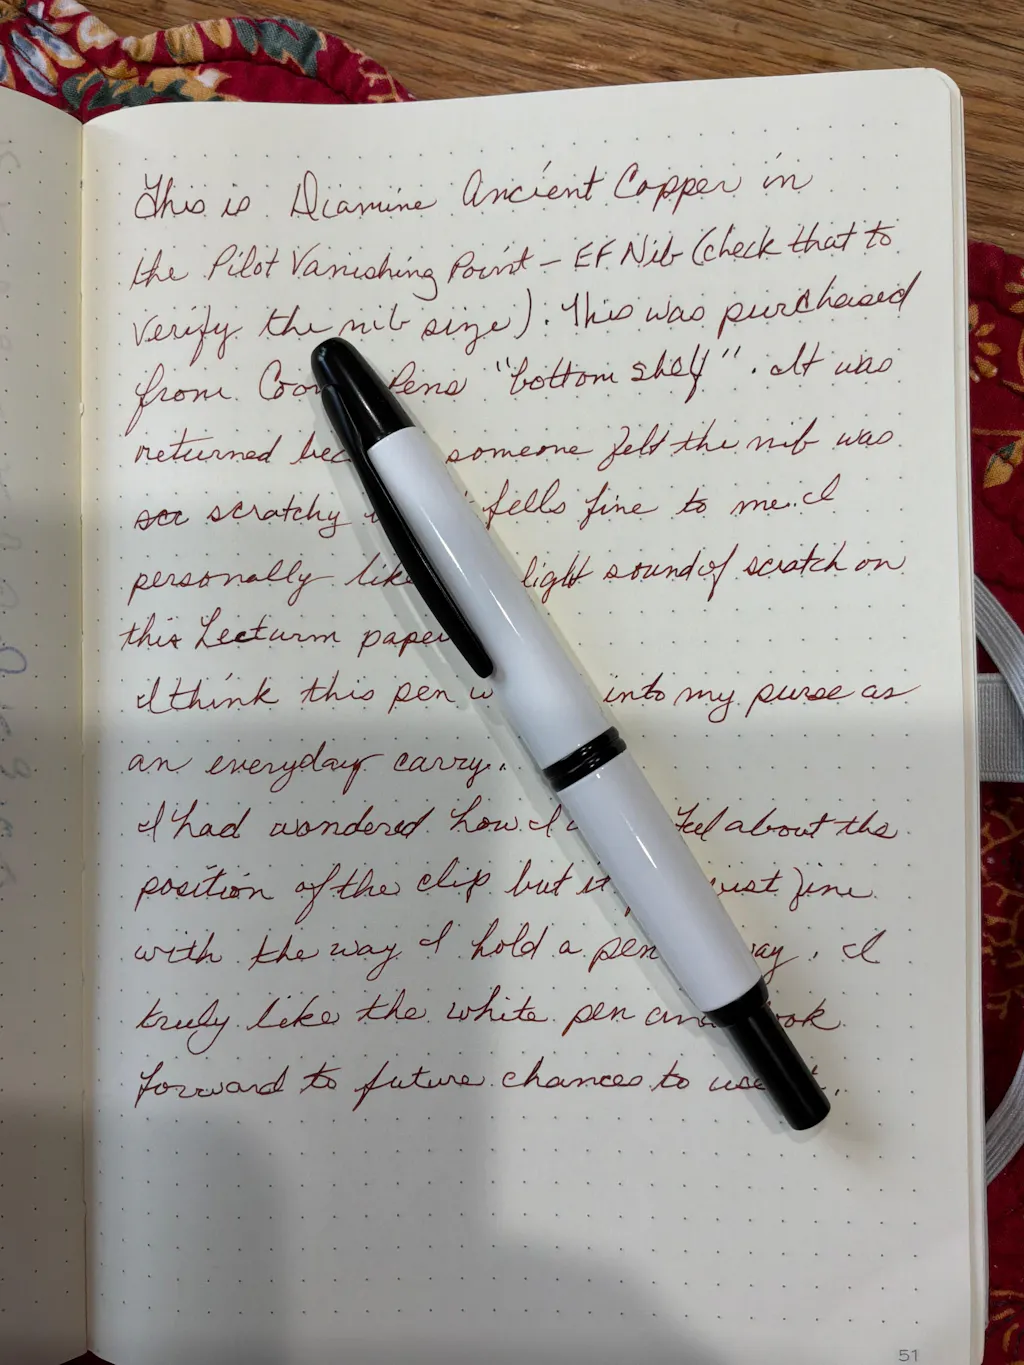 This is Diamine Ancient Copper in
the Pilot Vanishing Point - EF Nib (check that to
verify the nib size). This was purchased
from Pens "bottom shelf". It was
returned someone felt the nib was
scratchy fells fine to me. I
personally light sound of scratch on
this Lecturm paper
I think this pen into my purse as
an everyday carry.
I had wondered how I feel about the
position of the clip but it just fine
with the way I hold a pen . I
truly like the white pen and
forward to future chances to use .
51